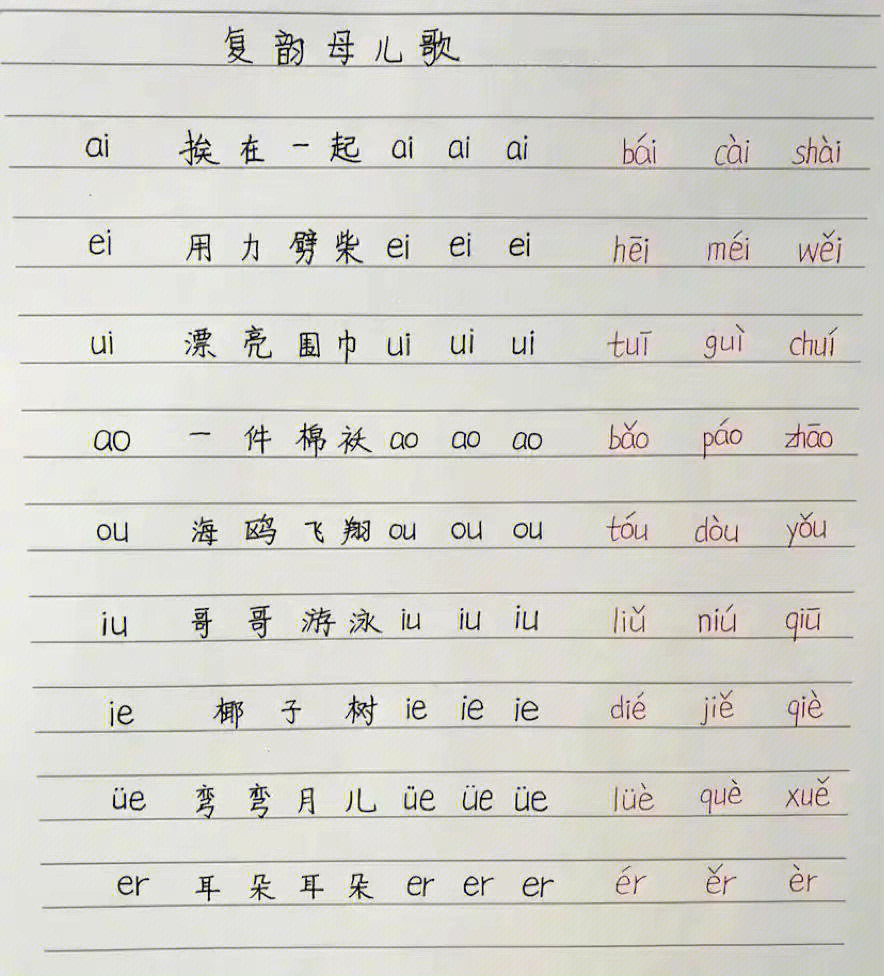 复韵母儿歌
ai 挨在一起 ai ai ai bái cài shài
ei 用力劈柴 ei ei ei hēi méi wěi
ui 漂亮围巾 ui ui ui tuī guì chuí
ao 一件棉袄 ao ao ao bǎo páo zhāo
ou 海鸥飞翔 ou ou ou tóu dòu yǒu
iu 哥哥游泳 iu iu iu liǔ niú qiū
ie 椰子树 ie ie ie dié jiě qiè
üe 弯弯月儿 üe üe üe lüè què xuě
er 耳朵耳朵 er er er ér ěr èr